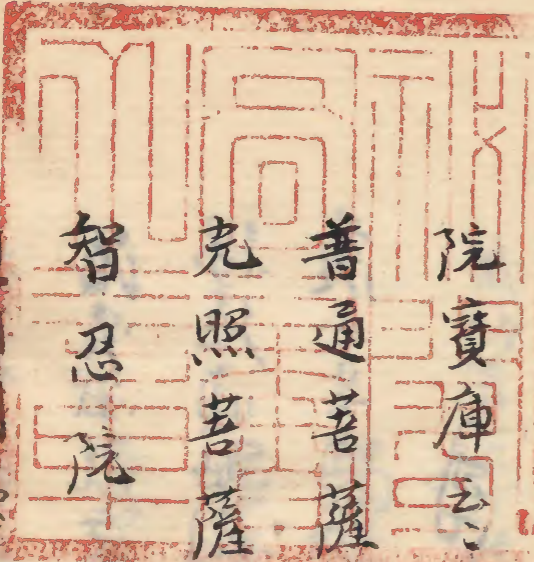 院寶庫云〻
普通菩薩
光照菩薩
智忍院